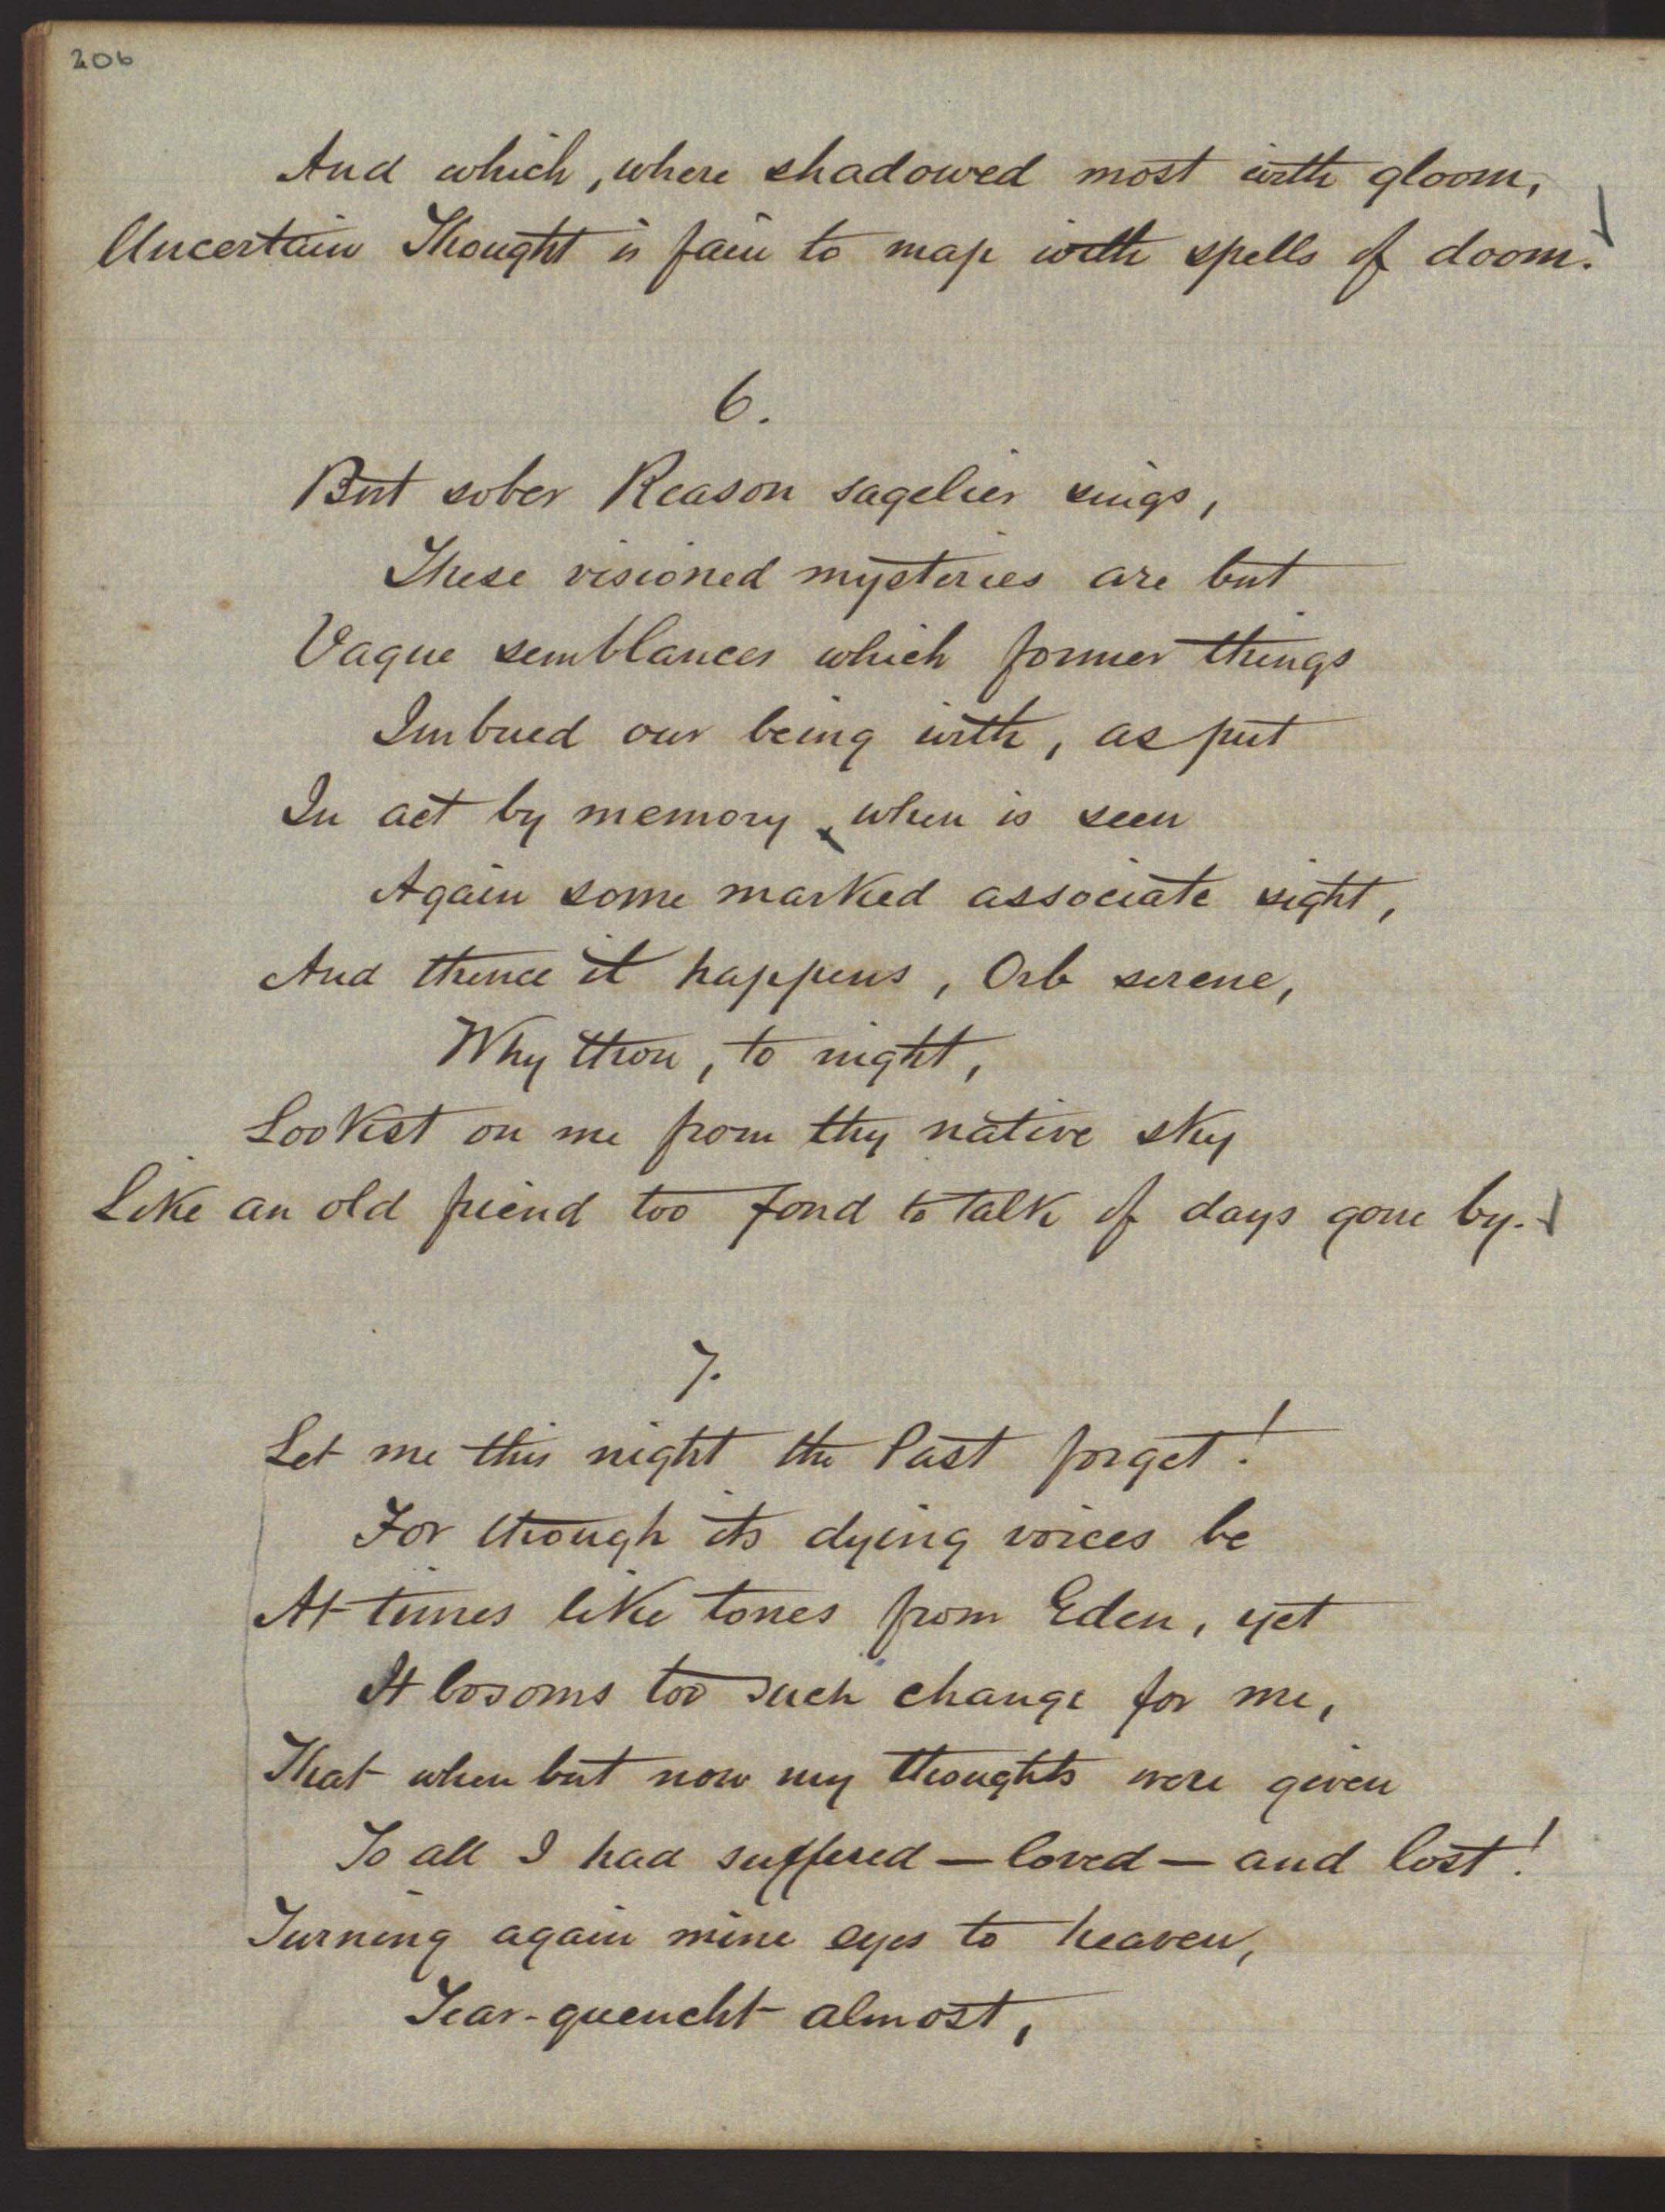 206
And which, where shadowed most with gloom,
Uncertain Thought is fain to map with spells of doom.
6.
But sober Reason sagelier sings,
These visioned mysteries are but
Vague semblances which former things
Imbued our being with, as put
In act by memory, when is seen
Again some marked associate sight,
And thence it happens, Orb serene,
Why thou, to night,
Lookest on me from thy native sky
Like an old friend too fond to talk of days gone by.
7.
Let me this night the Past forget!
For though its dying voices be
At times like tones from Eden, yet
It bosoms too such change for me,
That when but now my thoughts were given
To all I had suffered — loved — and lost!
Turning again mine eyes to heaven,
Tear-quencht almost,